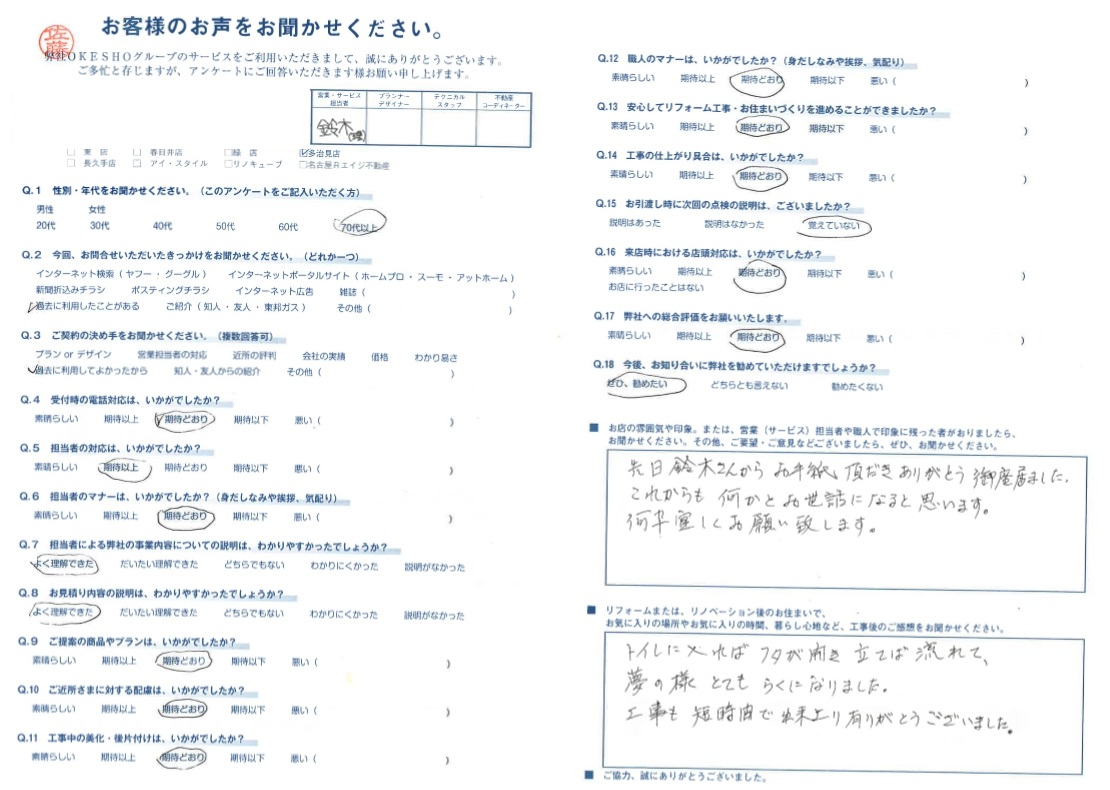 お客様のお声をお聞かせください。
佐藤
弊社OKESHOグループのサービスをご利用いただきまして、誠にありがとうございます。
ご多忙と存じますが、アンケートにご回答いただきます様お願い申し上げます。
営業・サービス担当者 プランナーデザイナー テクニカルスタッフ 不動産コーディネーター
鈴木
□ 東店 □ 春日井店 □緑店 ☑多治見店
□ 長久手店 □ アイ・スタイル □リノキューブ □名古屋Rエイジ不動産
Q.1 性別・年代をお聞かせください。(このアンケートをご記入いただく方)
男性 女性
20代 30代 40代 50代 60代 70代以上
Q.2 今回、お問合せいただいたきっかけをお聞かせください。(どれか一つ)
インターネット検索(ヤフー・グーグル) インターネットポータルサイト(ホームプロ・スーモ・アットホーム)
新聞折込みチラシ ポスティングチラシ インターネット広告 雑誌( )
過去に利用したことがある ご紹介(知人・友人・東邦ガス) その他( )
Q.3 ご契約の決め手をお聞かせください。(複数回答可)
プラン or デザイン 営業担当者の対応 近所の評判 会社の実績 価格 わかり易さ
過去に利用してよかったから 知人・友人からの紹介 その他( )
Q.4 受付時の電話対応は、いかがでしたか?
素晴らしい 期待以上 期待どおり 期待以下 悪い( )
Q.5 担当者の対応は、いかがでしたか?
素晴らしい 期待以上 期待どおり 期待以下 悪い( )
Q.6 担当者のマナーは、いかがでしたか?(身だしなみや挨拶、気配り)
素晴らしい 期待以上 期待どおり 期待以下 悪い( )
Q.7 担当者による弊社の事業内容についての説明は、わかりやすかったでしょうか?
よく理解できた だいたい理解できた どちらでもない わかりにくかった 説明がなかった
Q.8 お見積り内容の説明は、わかりやすかったでしょうか?
よく理解できた だいたい理解できた どちらでもない わかりにくかった 説明がなかった
Q.9 ご提案の商品やプランは、いかがでしたか?
素晴らしい 期待以上 期待どおり 期待以下 悪い( )
Q.10 ご近所さまに対する配慮は、いかがでしたか?
素晴らしい 期待以上 期待どおり 期待以下 悪い( )
Q.11 工事中の美化・後片付けは、いかがでしたか?
素晴らしい 期待以上 期待どおり 期待以下 悪い( )
Q.12 職人のマナーは、いかがでしたか?(身だしなみや挨拶、気配り)
素晴らしい 期待以上 期待どおり 期待以下 悪い( )
Q.13 安心してリフォーム工事・お住まいづくりを進めることができましたか?
素晴らしい 期待以上 期待どおり 期待以下 悪い( )
Q.14 工事の仕上がり具合は、いかがでしたか?
素晴らしい 期待以上 期待どおり 期待以下 悪い( )
Q.15 お引渡し時に次回の点検の説明は、ございましたか?
説明はあった 説明はなかった 覚えていない
Q.16 来店時における店頭対応は、いかがでしたか?
素晴らしい 期待以上 期待どおり 期待以下 悪い( )
お店に行ったことはない
Q.17 弊社への総合評価をお願いいたします。
素晴らしい 期待以上 期待どおり 期待以下 悪い( )
Q.18 今後、お知り合いに弊社を勧めていただけますでしょうか?
ぜひ、勧めたい どちらとも言えない 勧めたくない
■ お店の雰囲気や印象。または、営業(サービス)担当者や職人で印象に残った者がおりましたら、
お聞かせください。その他、ご要望・ご意見などございましたら、ぜひ、お聞かせください。
先日鈴木さんからお手紙頂だきありがとう御座居ました。
これからも何かとお世話になると思います。
何卒宜しくお願い致します。
■ リフォームまたは、リノベーション後のお住まいで、
お気に入りの場所やお気に入りの時間、暮らし心地など、工事後のご感想をお聞かせください。
トイレに入ればフタが開き立てば流れて、
夢の様とてもらくになりました。
工事も短時間で出来上り有りがとうございました。
■ ご協力、誠にありがとうございました。